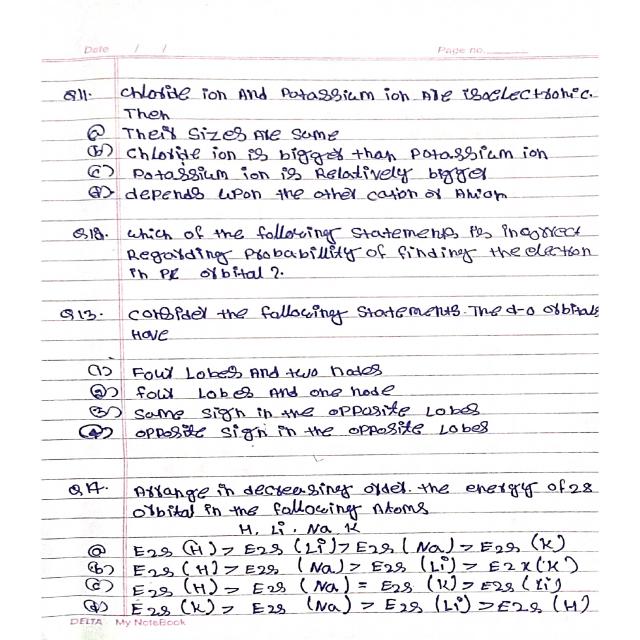 Date / / Page no.
Q11. Chloride ion And Potassium ion Are isoelectronic.
Then
(a) Their Sizes Are Same
(b) Chloride ion is bigger than Potassium ion
(c) Potassium ion is Relatively bigger
(d) depends upon the other cation or Anion
Q12. which of the following Statements is incorrect
Regarding Probability of finding the electron
in Px orbital ?
Q13. Consider the following Statements. The d-o orbitals
Have
(1) Four Lobes And two nodes
(2) four Lobes And one node
(3) Same Sign in the opposite Lobes
(4) opposite Sign in the opposite Lobes
Q14. Arrange in decreasing order. the energy of 2s
orbital in the following Atoms
H, Li, Na, K
(a) E2s (H) > E2s (Li) > E2s (Na) > E2s (K)
(b) E2s (H) > E2s (Na) > E2s (Li) > E2x (K)
(c) E2s (H) > E2s (Na) = E2s (K) > E2s (Li)
(d) E2s (K) > E2s (Na) > E2s (Li) > E2s (H)
DELTA My NoteBook